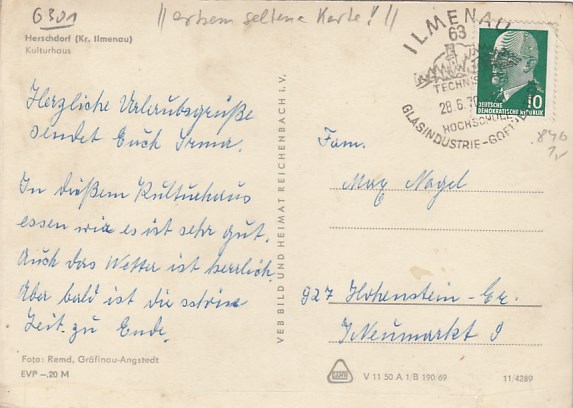 6301
!! extrem seltene Karte!!!
Herschdorf (Kr. Ilmenau)
Kulturhaus
Herzliche Urlaubsgrüße
sendet Euch Irma.
In diesem Kulturhaus
essen wir es ist sehr gut.
Auch das Wetter ist herrlich
Aber bald ist die schöne
Zeit zu Ende.
Foto: Remd, Gräfinau-Angstedt
EVP –.20 M
VEB BILD UND HEIMAT REICHENBACH I.V.
ILMENAU
63
TECHNISCHE
28.6.70
HOCHSCHULE
GLASINDUSTRIE-GOETHE
DEUTSCHE
DEMOKRATISCHE REPUBLIK
10
846
Fam.
Max Nagel
927 Hohenstein-Er.
Neumarkt 9
V 11 50 A 1/B 190 69
11/4289